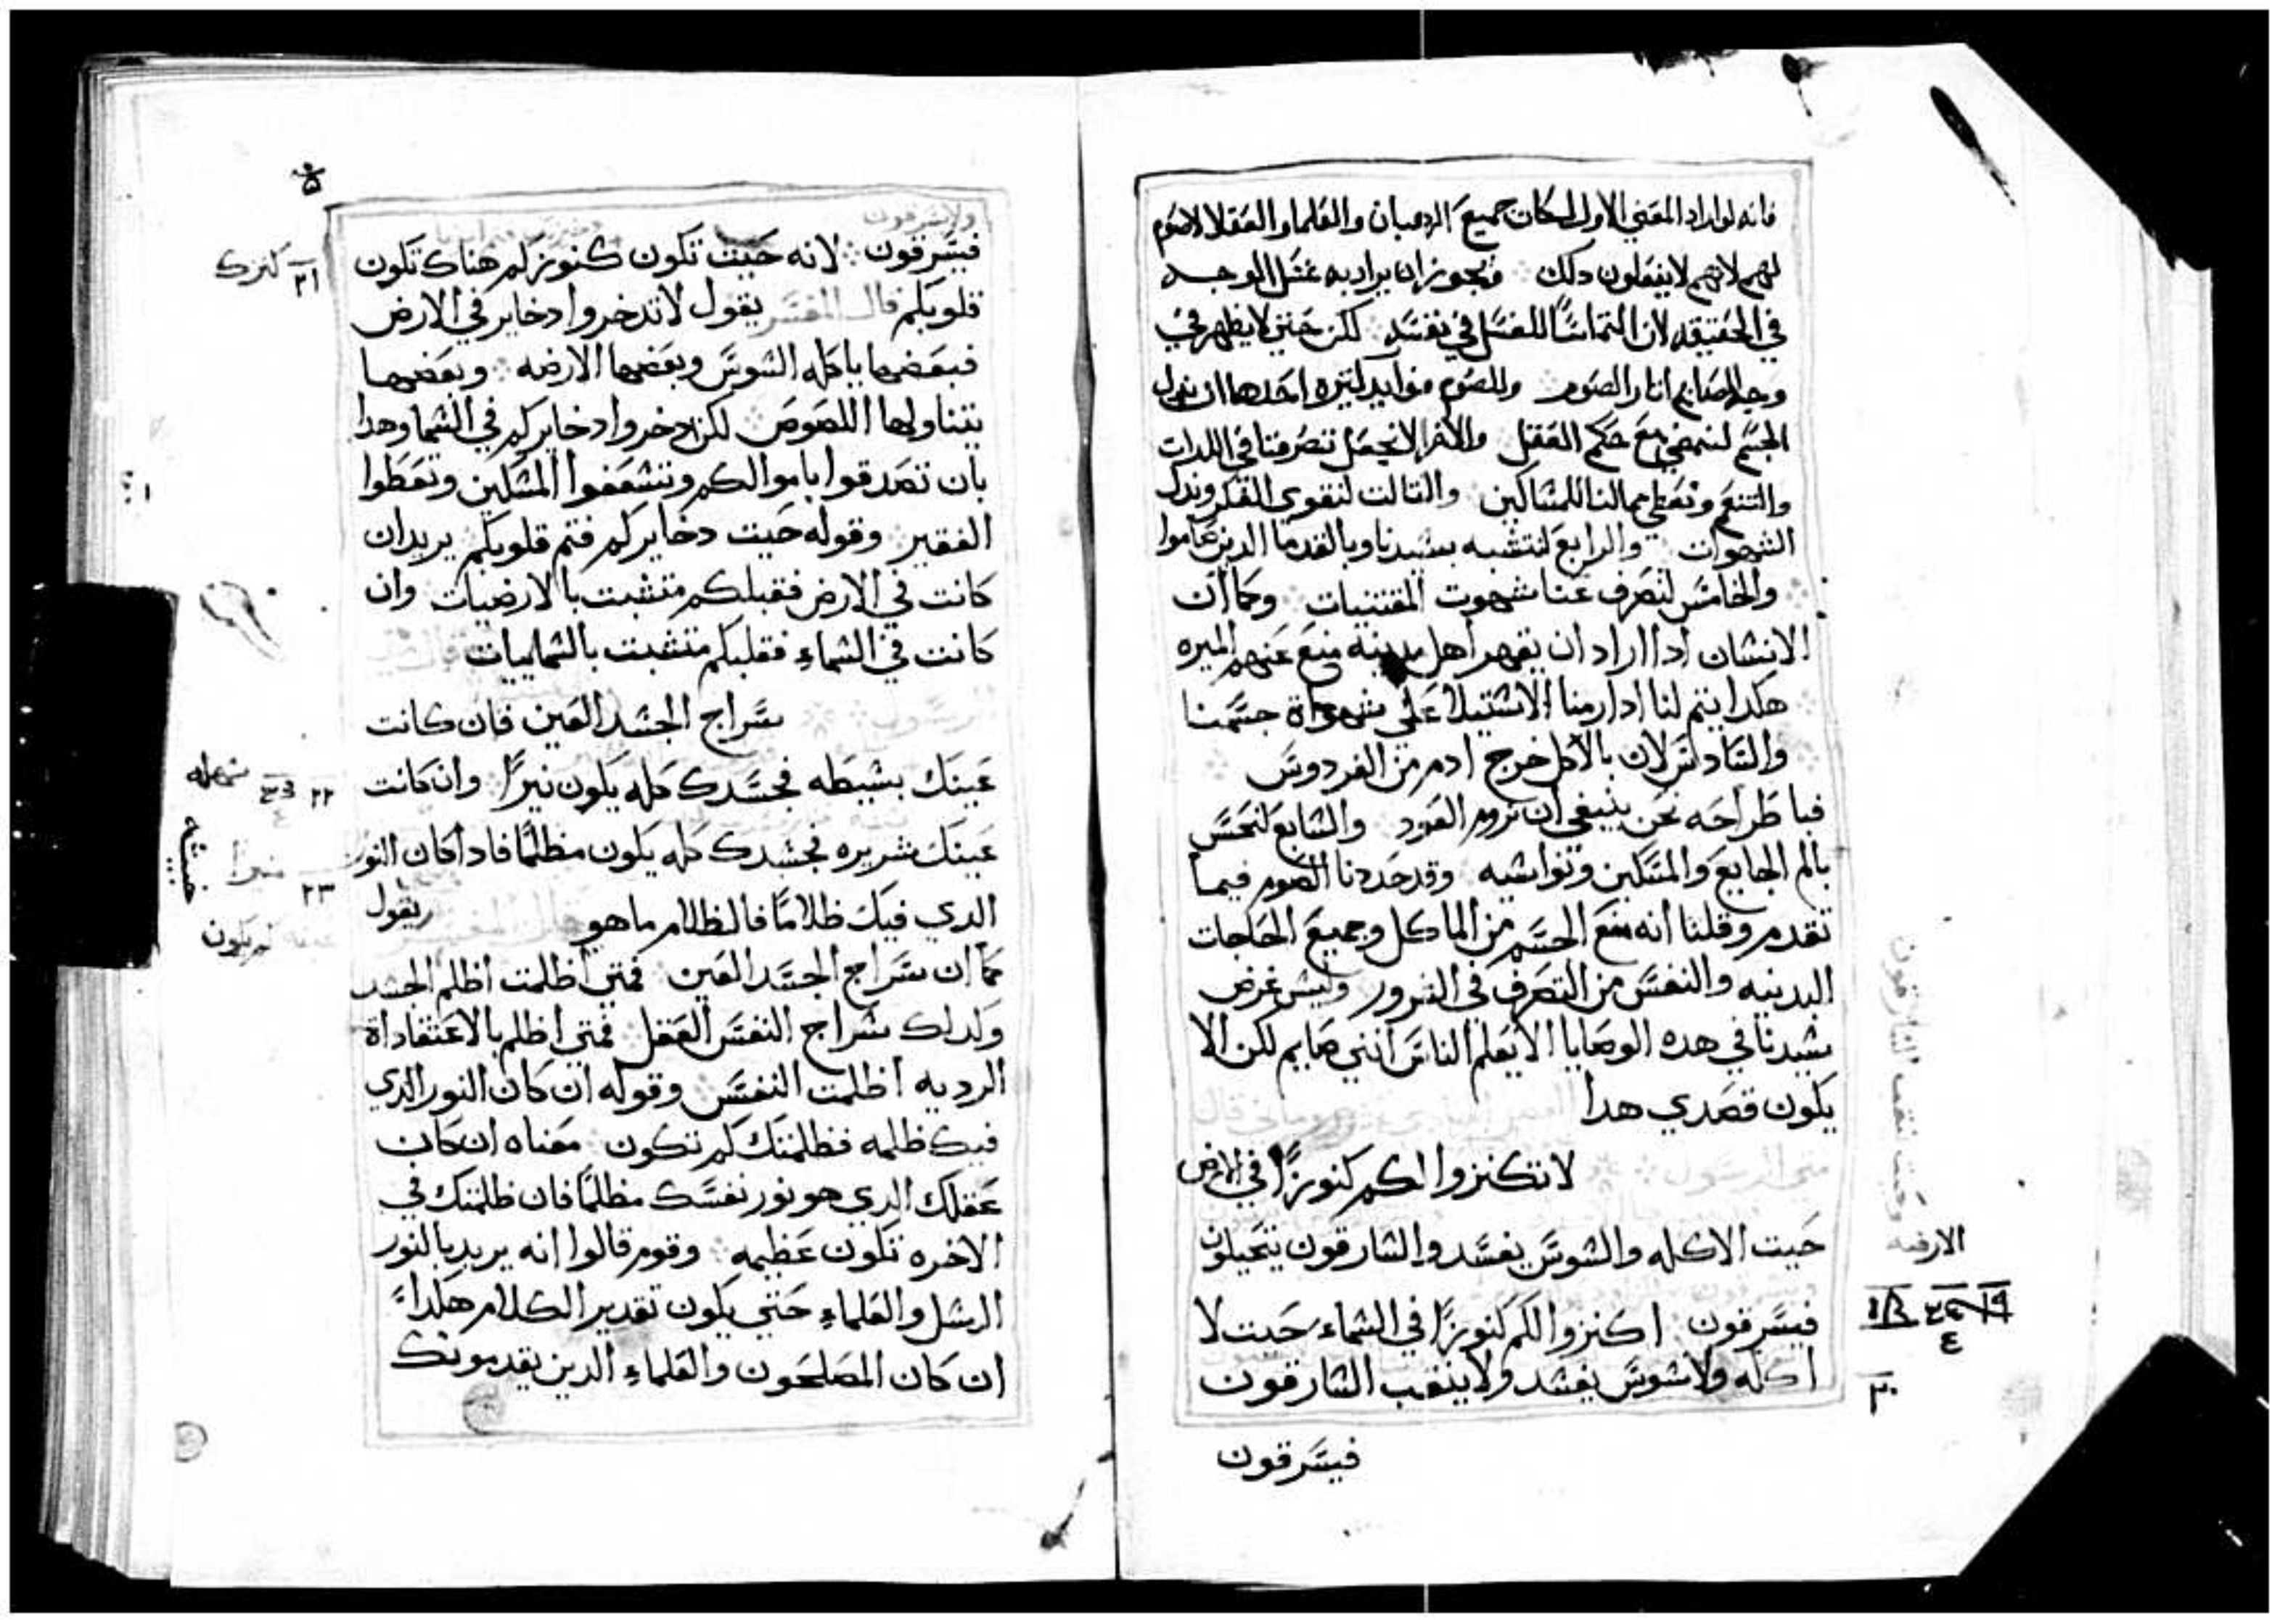 فانه لو اراد المعني الاول لكان جميع الرهبان والعلما والعقلا لا صوم
لهم لانهم لا يفعلون دلك ويجوز ان يراد به غسل الوجه
في الحقيقه لان التماسًا للغسل في نفسه لكن حتي لا يظهر في
وجه الصايم اتار الصوم وللصوم فوايد كتيره احدها ان
الجسم لنمضي مع حكم العقل والاخر لا نجعل تصرفنا في اللدات
والتنعم ونعطي مالنا للمساكين والتالت لتقوي الفكر
الشهوات والرابع لنتشبه بسيدنا وبالقدما الدين صاموا
والخامس لنصرف عنا شهوت المقتنيات وكما ان
الانسان ادا اراد ان يقهر اهل مدينه منع عنهم الميره
هكدا يتم لنا ادا رمنا الاستيلا علي شهواة جسمنا
والسادس لان بالاكل خرج ادم من الفردوس
فباطراحه نحن ينبغي ان نروم العود والسابع لنحس
بالم الجايع والمسكين ونواسيه وقد حددنا الصوم فيما
تقدم وقلنا انه منع الجسم من الماكل وجميع الحاجات
البدنيه والنفس من التصرف في الشرور وليس غرض
سيدنا في هده الوصايا الا يعلم الناس انني صايم لكن الا
يكون قصدي هدا
متي الرسول
لا تكنزوا لكم كنوزًا في الارض
حيت الاكله والسوس يفسد والسارقون يتحيلون
فيسرقون اكنزوا لكم كنوزًا في السماء حيت لا
اكله ولا سوس يفسد ولا ينقب السارقون
فيسرقون
الارضه
١٩
٢٠
فيسرقون لانه حيت تكون كنوزكم هناك تكون
قلوبكم قال المفسر يقول لا تدخروا دخاير في الارض
فبعضها ياكله السوس وبعضها الارضه وبعضها
يتناولها اللصوص لكن ادخروا دخايركم في السما وهدا
بان تصدقوا باموالكم وتسعفوا المسكين وتعطوا
الفقير وقوله حيت دخايركم فتم قلوبكم يريد ان
كانت في الارض فقبلكم متشبت بالارضيات وان
كانت في السماء فقلبكم متشبت بالسماييات
الرسول سراج الجسد العين فان كانت
عينك بسيطه فجسدك كله يكون نيرًا وان كانت
عينك شريره فجسدك كله يكون مظلمًا فادا كان النور
الدي فيك ظلامًا فالظلام ما هو قال المفسر يقول
كما ان سراج الجسد العين فمتي اظلمت اظلم الجسد
ولدلك سراج النفس العقل فمتي اظلم بالاعتقاداة
الرديه اظلمت النفس وقوله ان كان النور الدي
فيك ظلمه فظلمتك كم تكون معناه ان كان
عقلك الدي هو نور نفسك مظلمًا فان ظلمتك في
الاخره تكون عظيمه وقوم قالوا انه يريد بالنور
الرسل والعلماء حتي يكون تقدير الكلام هكداً
ان كان المصلحون والعلماء الدين يقدمونك
٢١ كنزك
٢٢
٢٣ منيرا
خبيثه